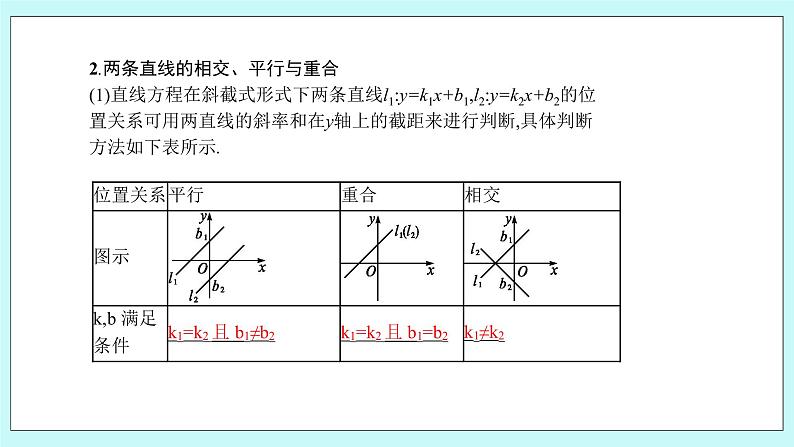 2.两条直线的相交、平行与重合
(1)直线方程在斜截式形式下两条直线l₁:y=k₁x+b₁,l₂:y=k₂x+b₂的位
置关系可用两直线的斜率和在y轴上的截距来进行判断,具体判断
方法如下表所示.
位置关系 平行 重合 相交
图示
y b₁ O x l₁ l₂ b₂
y l₁(l₂) O x
y b₁ l₂ O x l₁ b₂
k,b 满足
条件
k₁=k₂ 且 b₁≠b₂
k₁=k₂ 且 b₁=b₂
k₁≠k₂